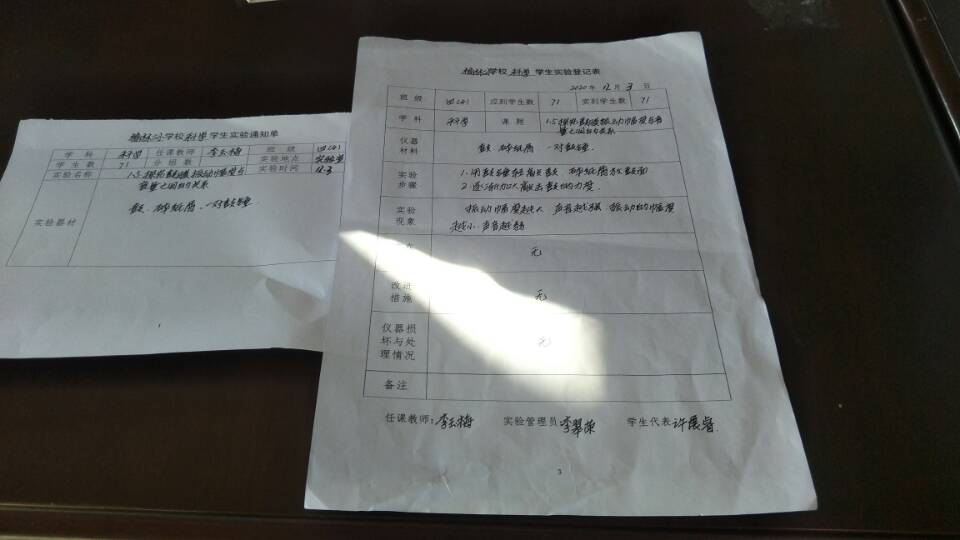 榆林小学校科学学生实验通知单
学科 科学 任课教师 李玉梅 班级 四(1)
学生数 71 分组数 实验地点 实验室
实验名称 1.5探究鼓面振动幅度与 实验时间 12.3
音量之间的关系
实验器材 鼓、碎纸屑、一对鼓锤
1
榆林小学校 科学 学生实验登记表
2020年 12月 3日
班级 四(1) 应到学生数 71 实到学生数 71
学科 科学 课题 1.5探究鼓面振动幅度与音
量之间的关系
仪器材料 鼓 碎纸屑 一对鼓锤
实验步骤 1.用鼓锤轻敲鼓 碎纸屑放鼓面
2.逐渐加大敲击鼓的力度.
实验现象 振动幅度越大 声音越强 振动的幅度
越小.声音越弱
无
改进措施 无
仪器损坏与处理情况 无
备注
任课教师:李玉梅 实验管理员 李翠荣 学生代表 许展睿
3